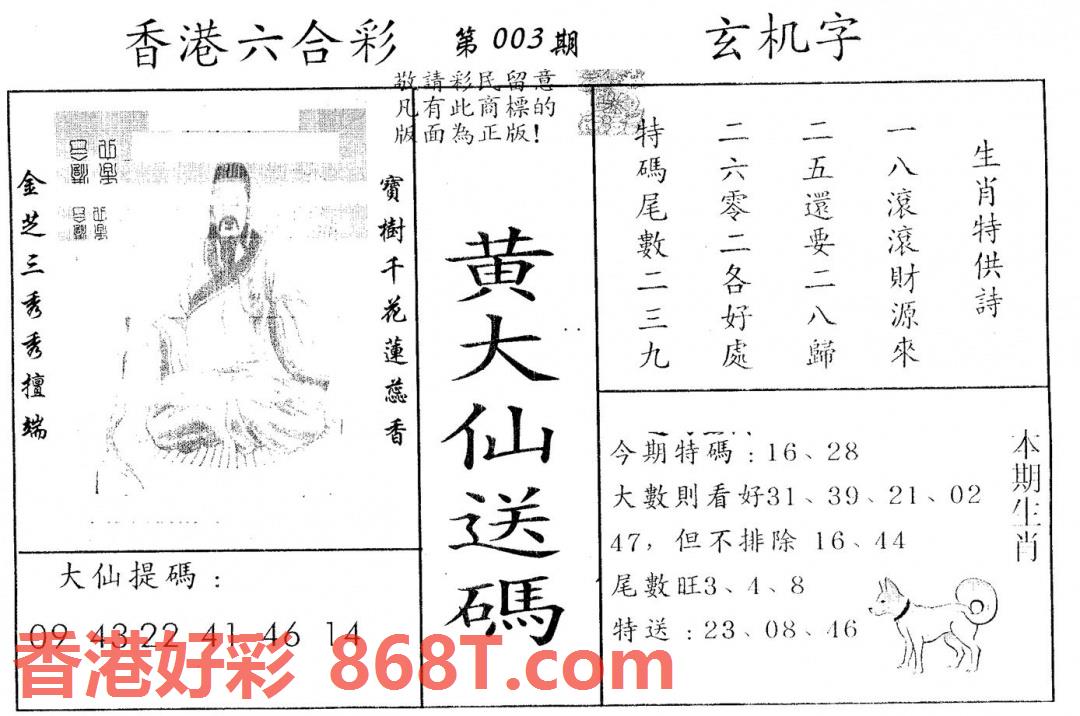 香港六合彩 第003期 玄机字
敬請彩民留意
凡有此商標的
版面為正版!
金芝三秀秀擅端
寶樹千花蓮蕊香
黄大仙送碼
大仙提碼:
09 43 22 41 46 14
生肖特供詩
一八滾滾財源來
二五還要二八歸
二六零二各好處
特碼尾數二三九
今期特碼:16、28
大數則看好31、39、21、02
47,但不排除 16、44
尾數旺3、4、8
特送:23、08、46
本期生肖
香港好彩 868T.com